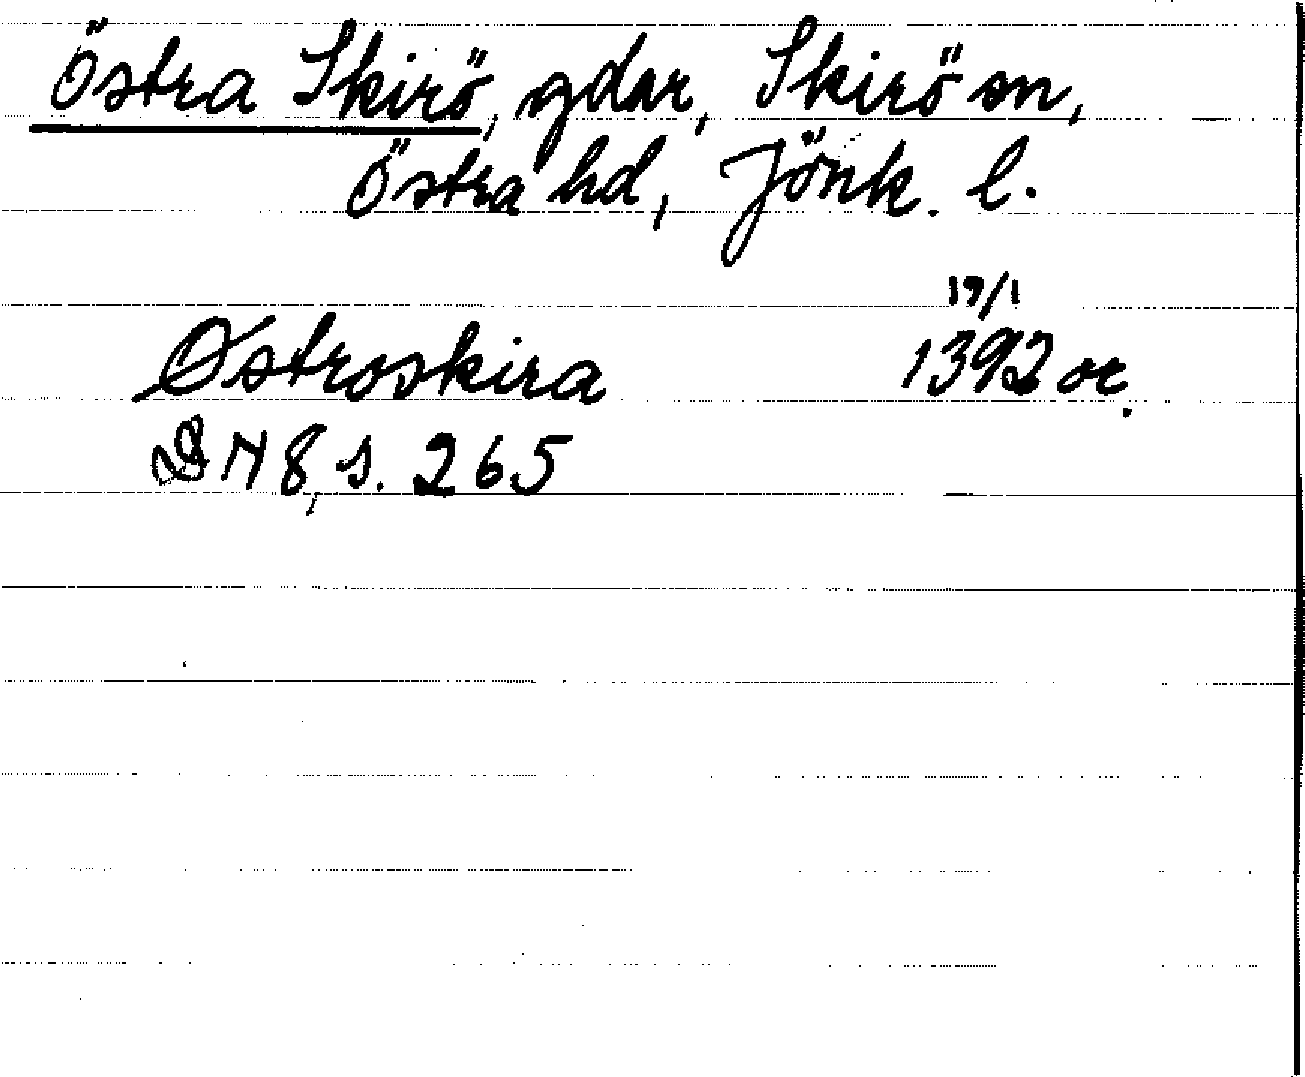 Östra Skirö, gdar, Skirö sn,
Östra hd, Jönk. l.
19/1
Østroskira 1392 or.
DN 8, s. 265